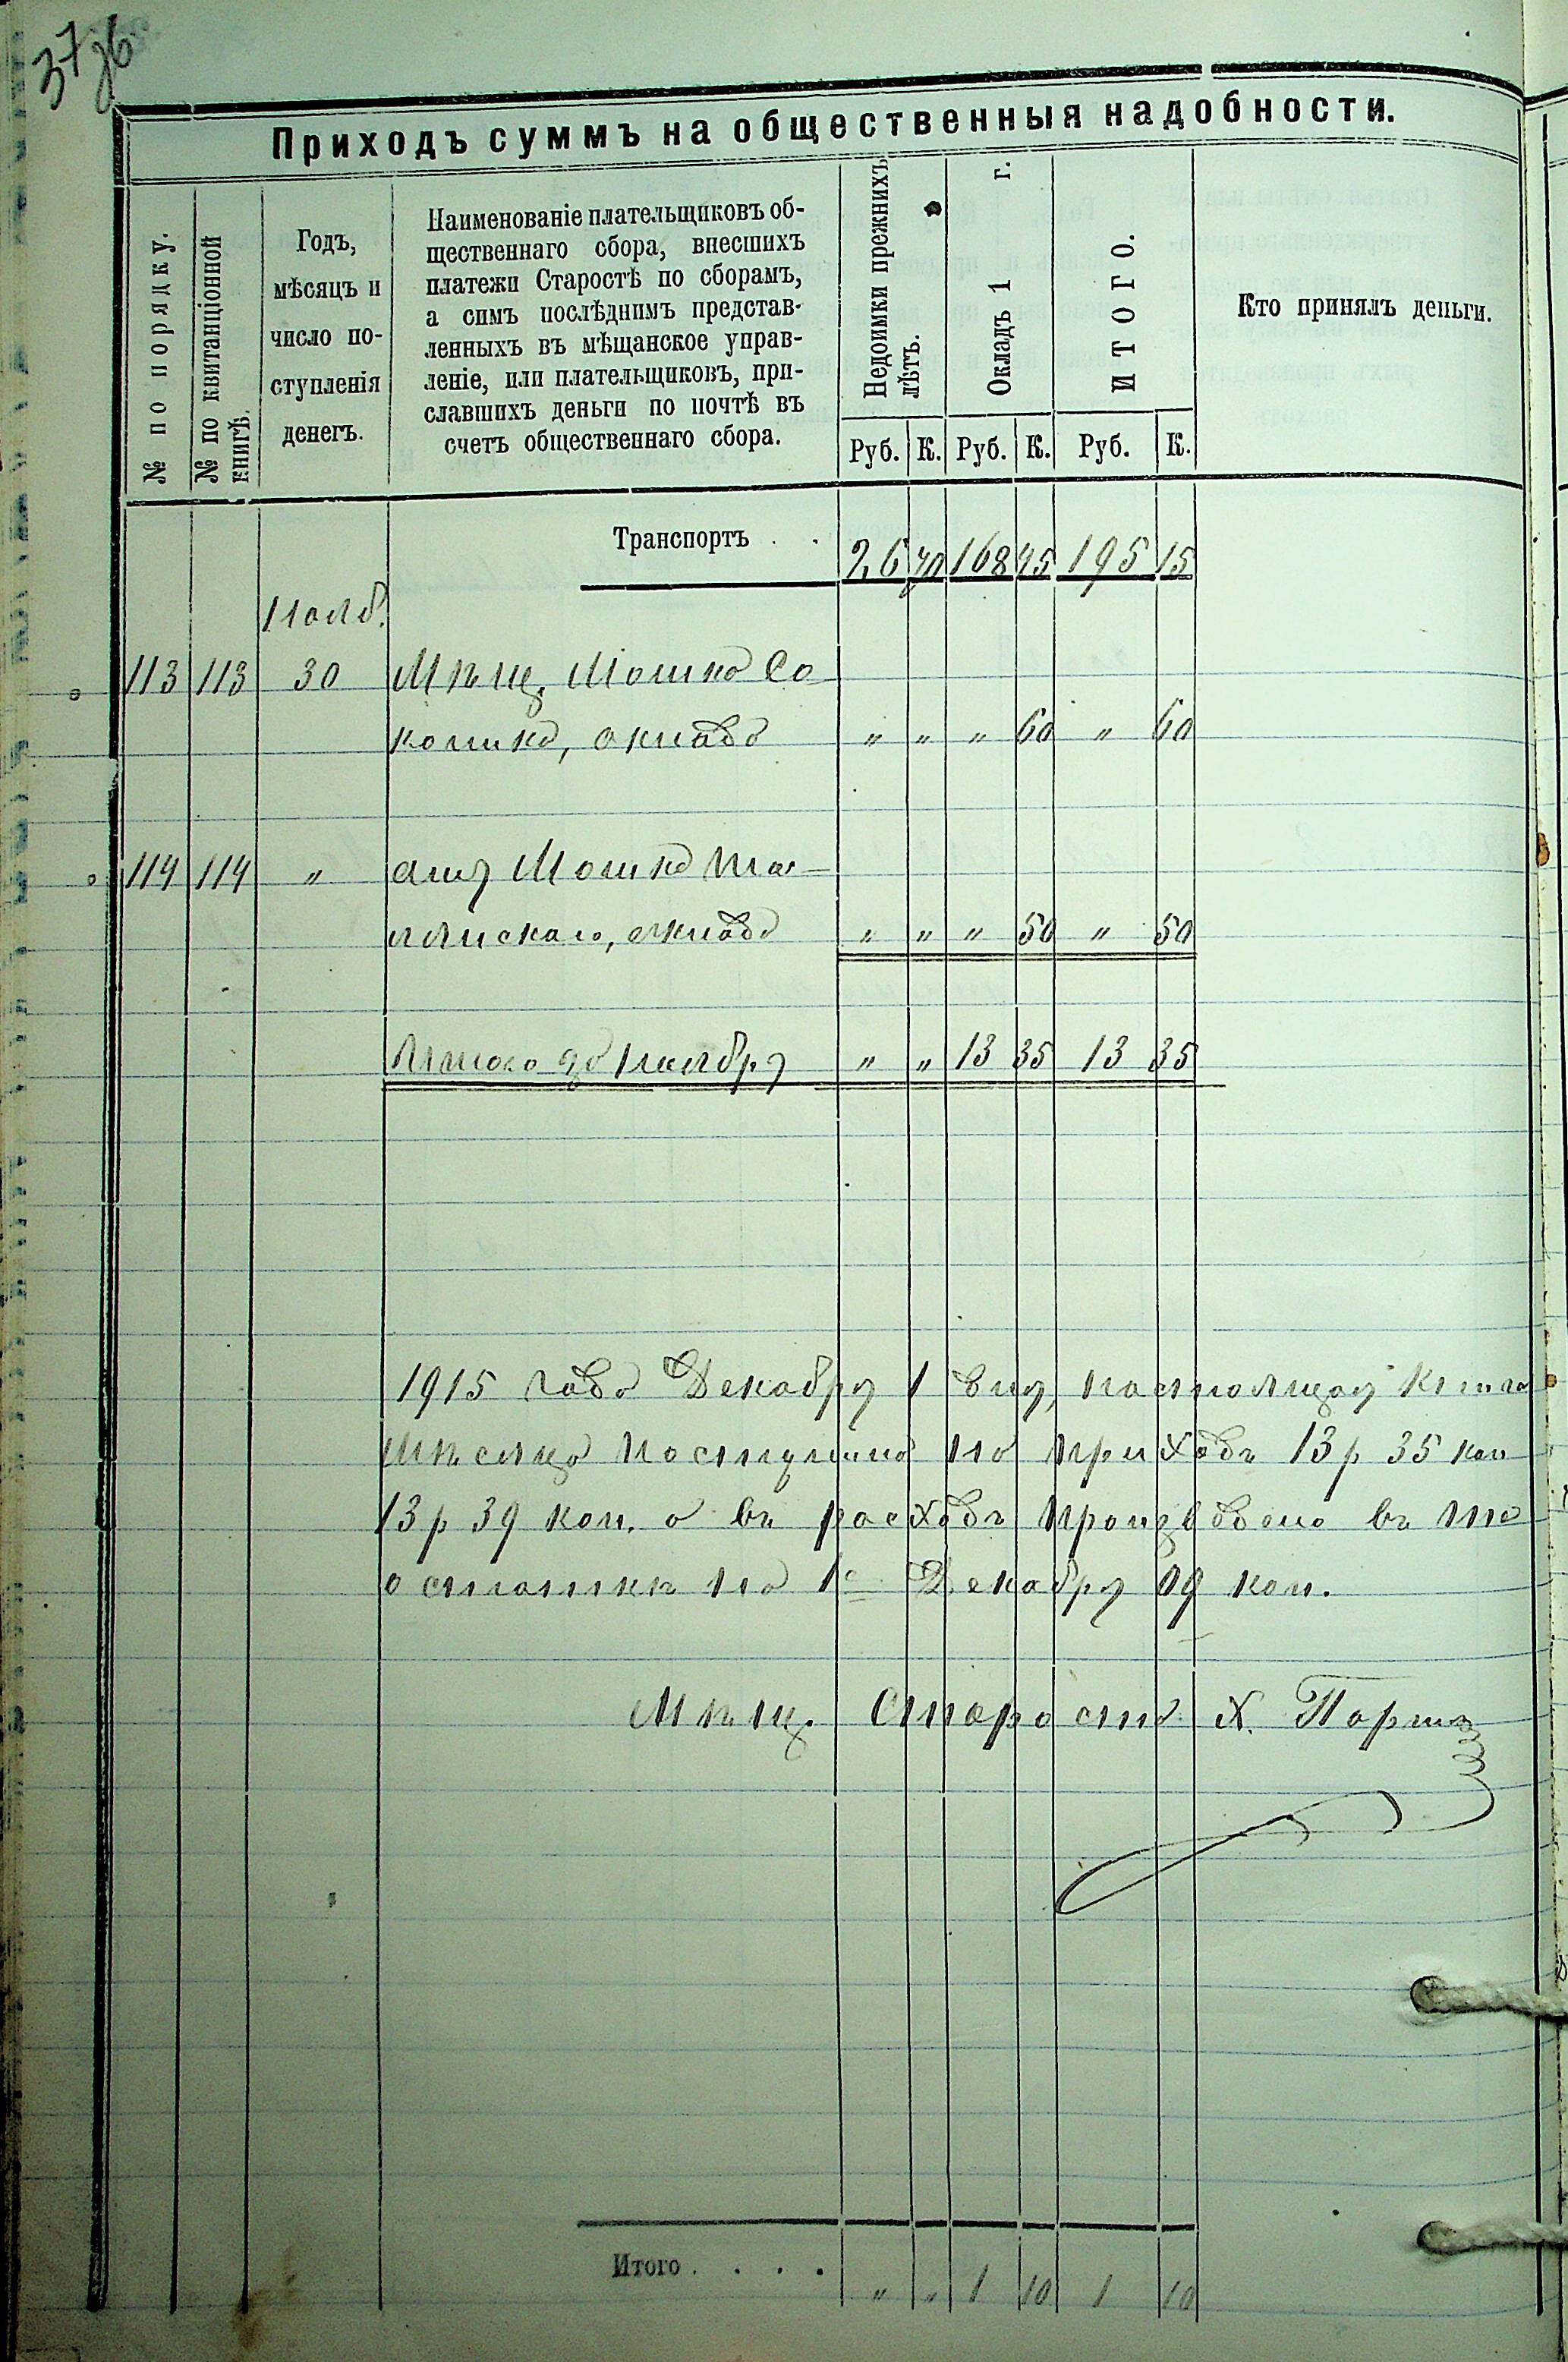 37 об
Приходъ суммъ на общественныя надобности.
№ по порядку.
№ по квитанціонной
книгѣ.
Годъ,
мѣсяцъ и
число по-
ступленія
денегъ.
Наименованіе плательщиковъ об-
щественнаго сбора, внесшихъ
платежи Старостѣ по сборамъ,
а симъ послѣднимъ представ-
ленныхъ въ мѣщанское управ-
леніе, или плательщиковъ, при-
славшихъ деньги по почтѣ въ
счетъ общественнаго сбора.
Недоимки прежнихъ
лѣтъ.
Окладъ 1 г.
ИТОГО.
Кто принялъ деньги.
Руб. К. Руб. К. Руб. К.
Транспортъ . . 26 70 168 45 195 15
Нояб.
113 113 30 Мѣщ. Мошка Со-
колика, оклада " " " 60 " 60
114 114 " Мошка
оклада " " " 50 " 50
Итого за Ноябрь " " 13 35 13 35
1915 года Декабря 1 дня,
мѣсяца поступило на приходъ 13 р 35 коп
13 р 39 коп. а въ расходъ произведено въ
остаткѣ на 1е Декабря 09 коп.
Мѣщ. Староста Х.
Итого . . . . " " 1 10 1 10